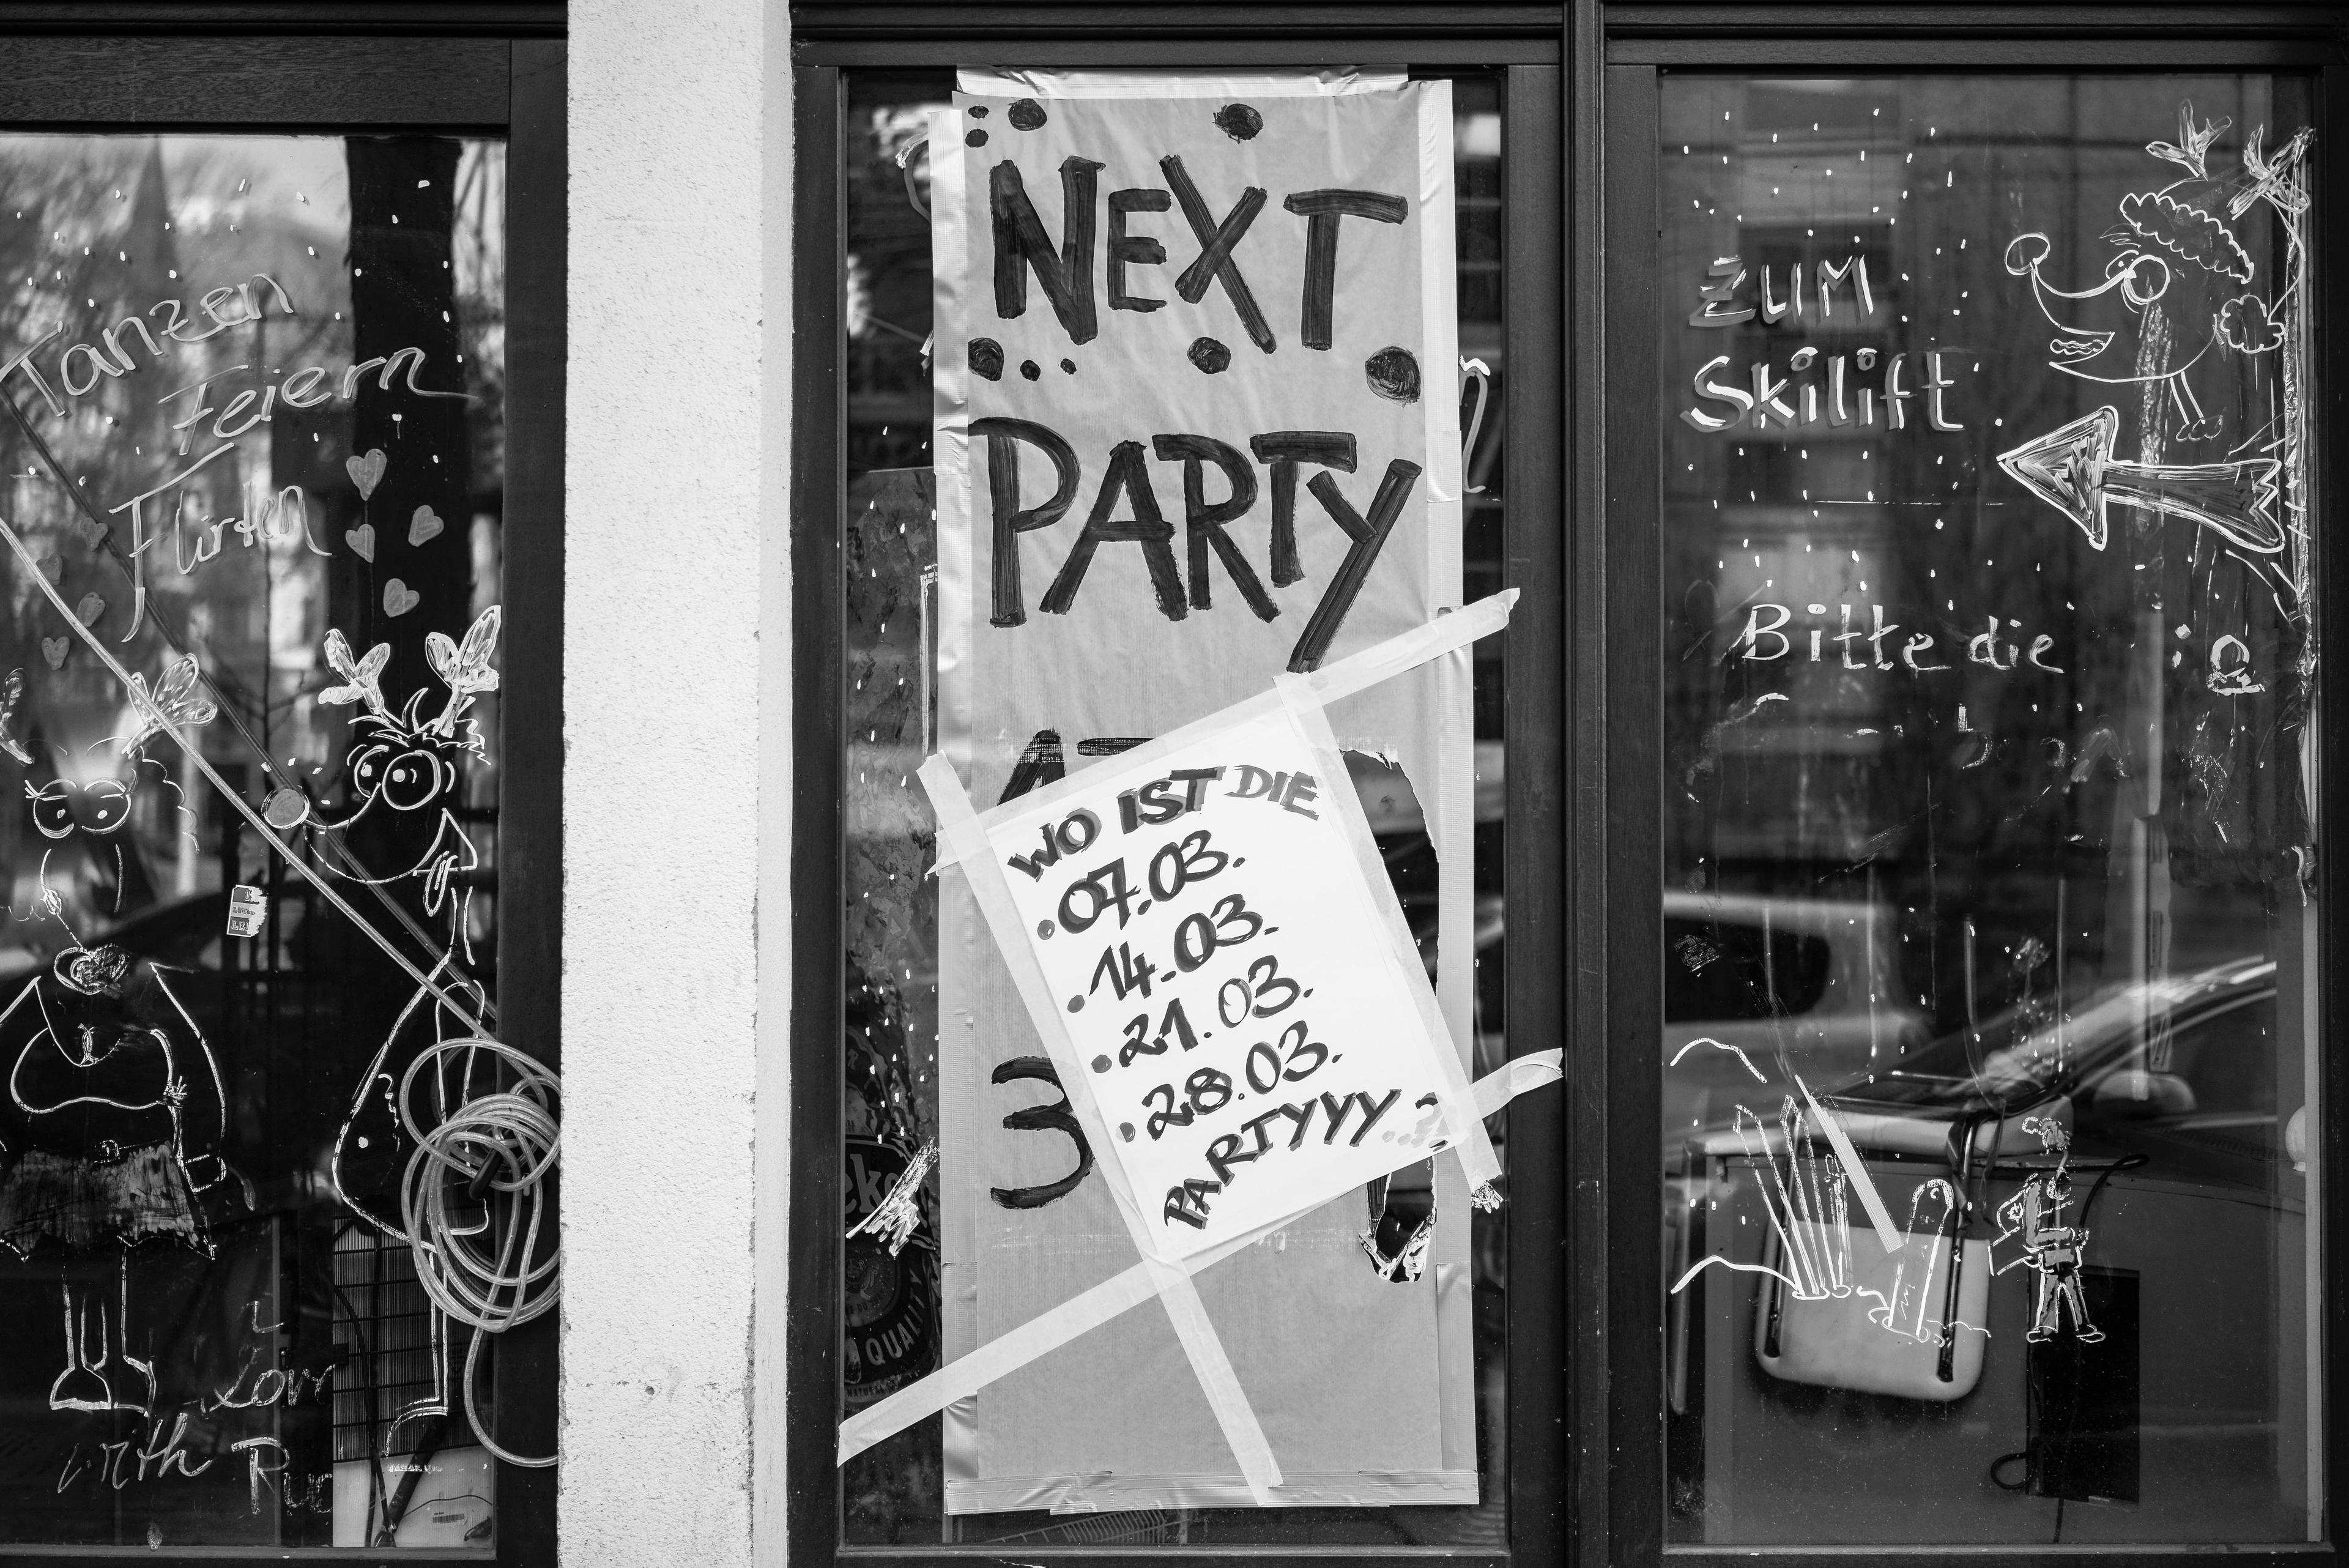 Tanzen
Feiern
Flirten
with
NEXT
PARTY
3
WO IST DIE
.07.03.
.14.03.
.21.03.
.28.03.
PARTYYY..?
QUALITY
ZUM
Skilift
Bitte die